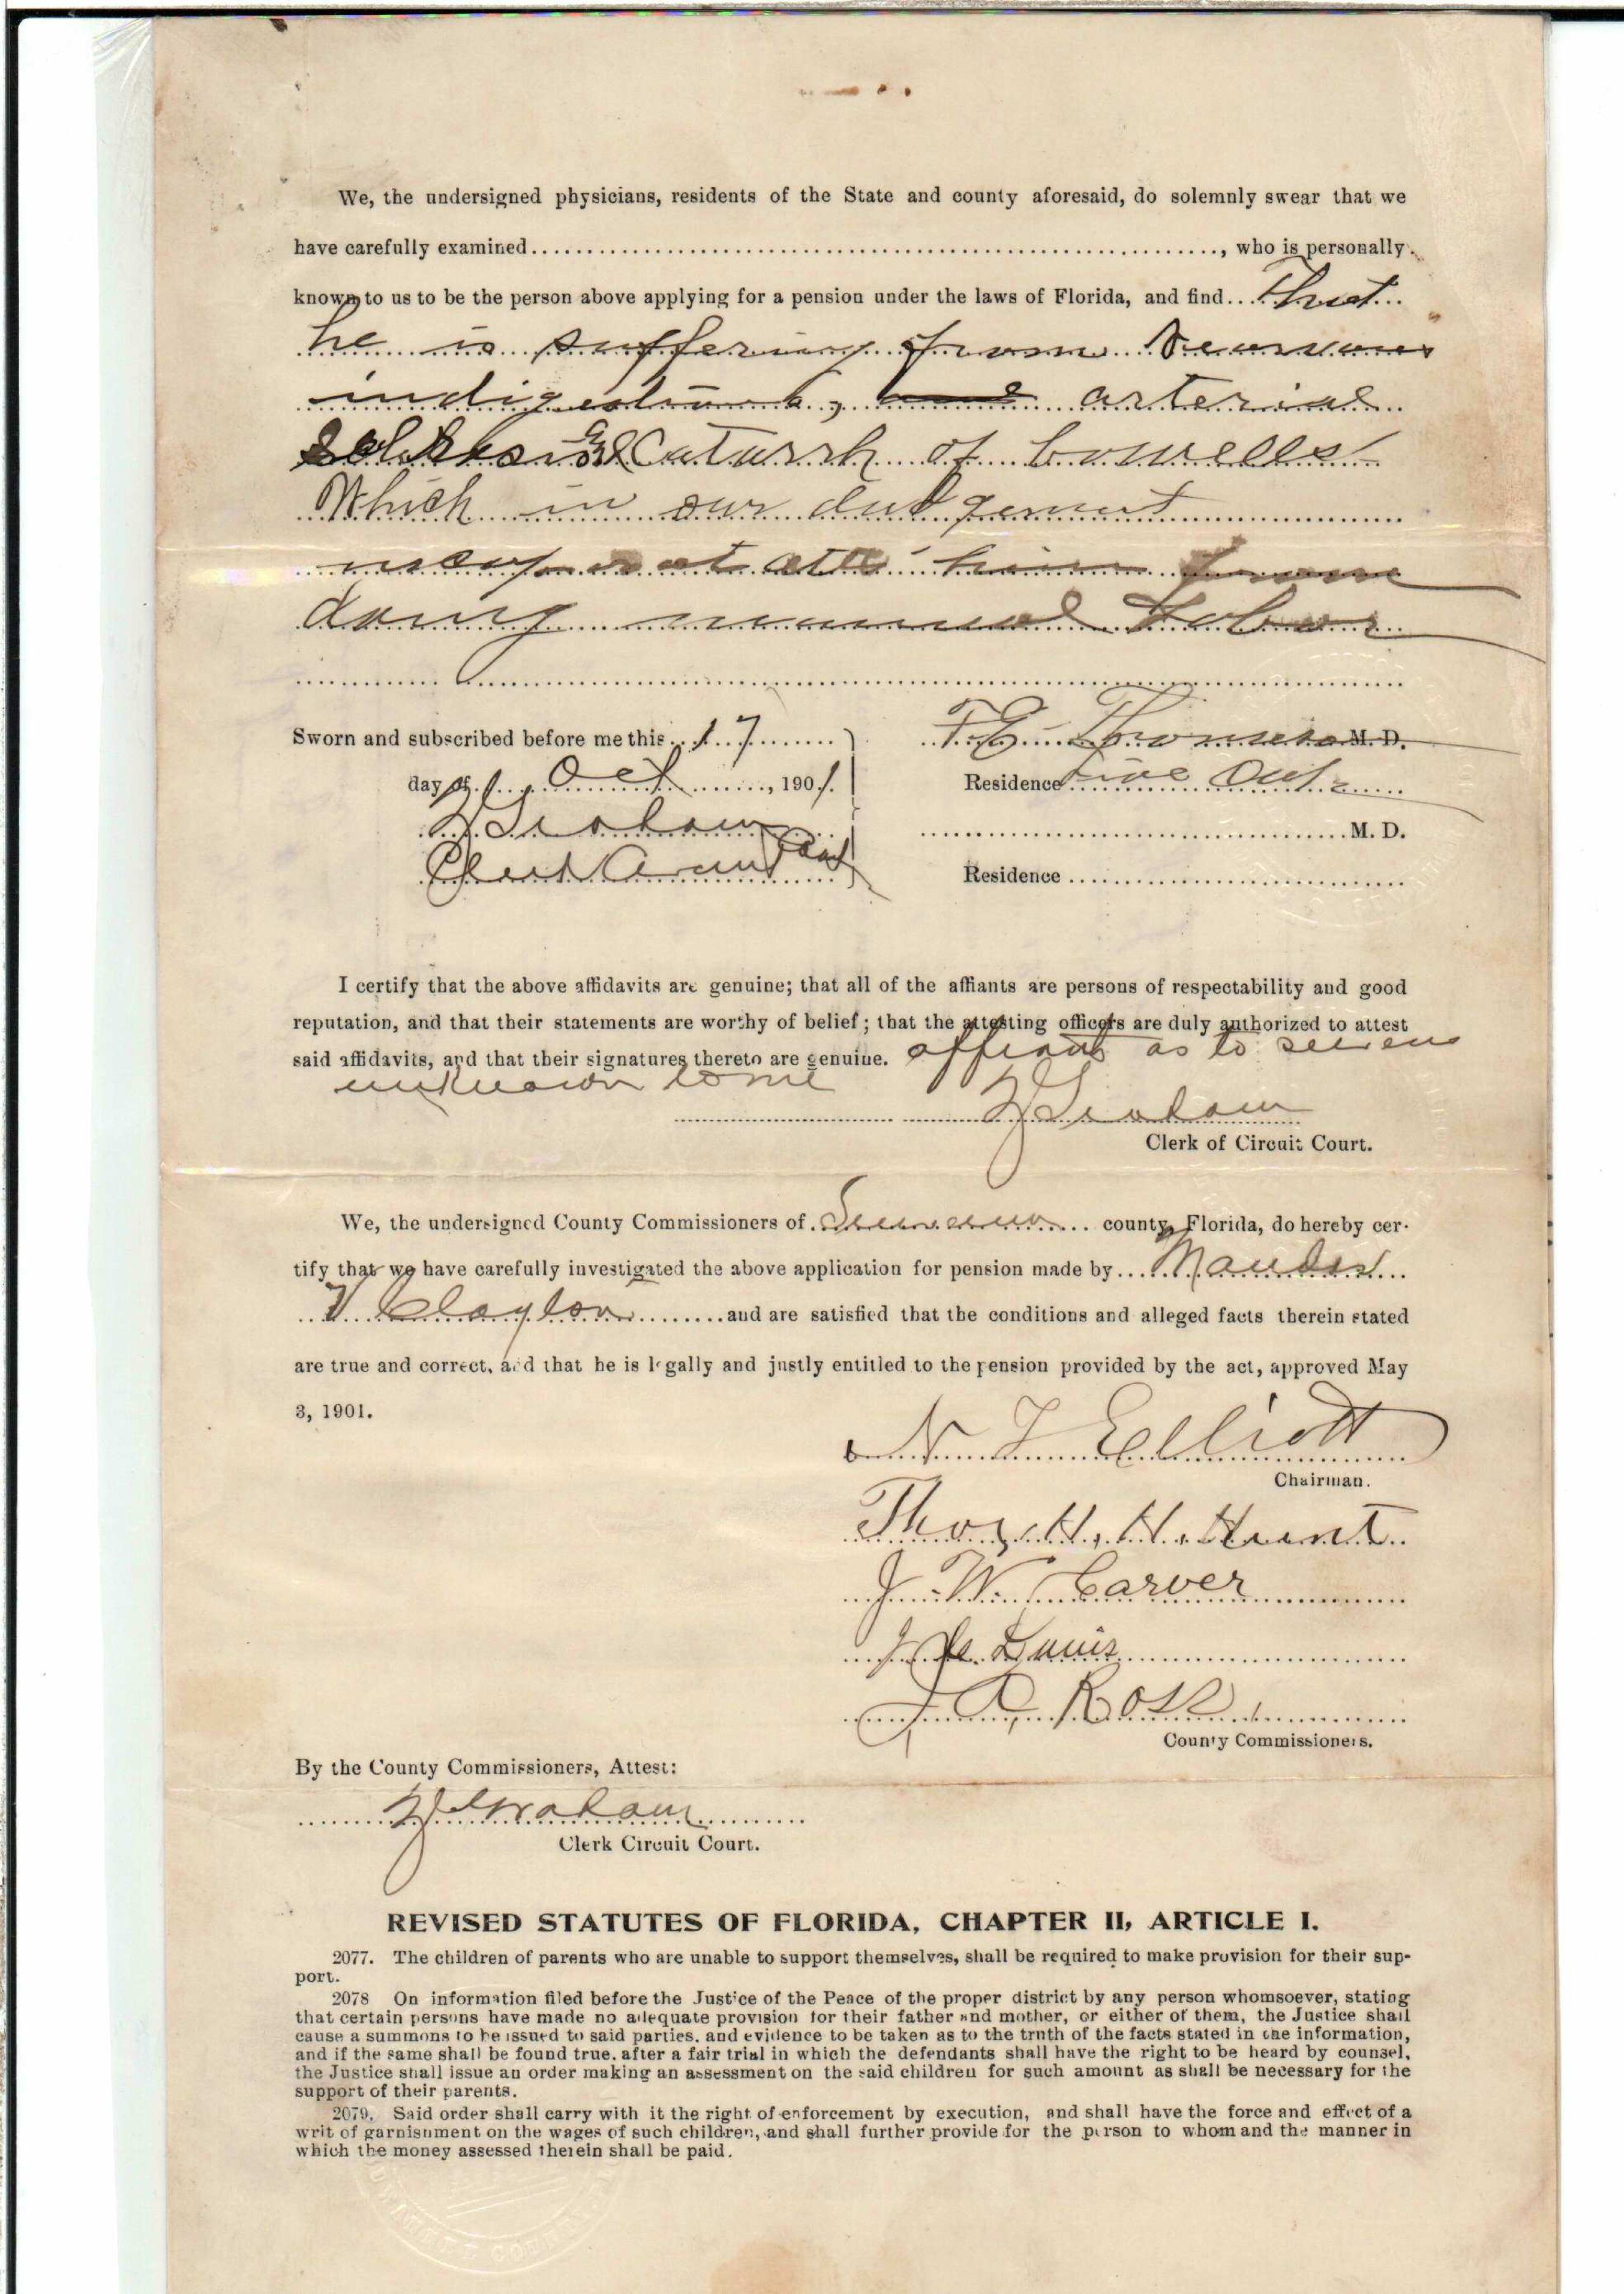 We, the undersigned physicians, residents of the State and county aforesaid, do solemnly swear that we
have carefully examined ......................................................, who is personally
known to us to be the person above applying for a pension under the laws of Florida, and find ... that
he is suffering from Nervous
indigestion, arterial
& Catarrh of bowells
Which in our
him from
doing manual labor
Sworn and subscribed before me this 17
day of Oct, 1901.
Graham
F.E. M. D.
Residence Live Oak
M. D.
Residence
I certify that the above affidavits are genuine; that all of the affiants are persons of respectability and good
reputation, and that their statements are worthy of belief; that the attesting officers are duly authorized to attest
said affidavits, and that their signatures thereto are genuine. affiants as to
unknown to me
Graham
Clerk of Circuit Court.
We, the undersigned County Commissioners of Suwannee county, Florida, do hereby cer-
tify that we have carefully investigated the above application for pension made by
V Clayton and are satisfied that the conditions and alleged facts therein stated
are true and correct, and that he is legally and justly entitled to the pension provided by the act, approved May
3, 1901.
N T Elliott
Chairman.
Thos. H. H. Hunt
J. W. Carver
J. A. Ross
County Commissioners.
By the County Commissioners, Attest:
Graham
Clerk Circuit Court.
REVISED STATUTES OF FLORIDA, CHAPTER II, ARTICLE I.
2077. The children of parents who are unable to support themselves, shall be required to make provision for their sup-
port.
2078 On information filed before the Justice of the Peace of the proper district by any person whomsoever, stating
that certain persons have made no adequate provision for their father and mother, or either of them, the Justice shall
cause a summons to be issued to said parties, and evidence to be taken as to the truth of the facts stated in the information,
and if the same shall be found true, after a fair trial in which the defendants shall have the right to be heard by counsel,
the Justice shall issue an order making an assessment on the said children for such amount as shall be necessary for the
support of their parents.
2079. Said order shall carry with it the right of enforcement by execution, and shall have the force and effect of a
writ of garnishment on the wages of such children, and shall further provide for the person to whom and the manner in
which the money assessed therein shall be paid.